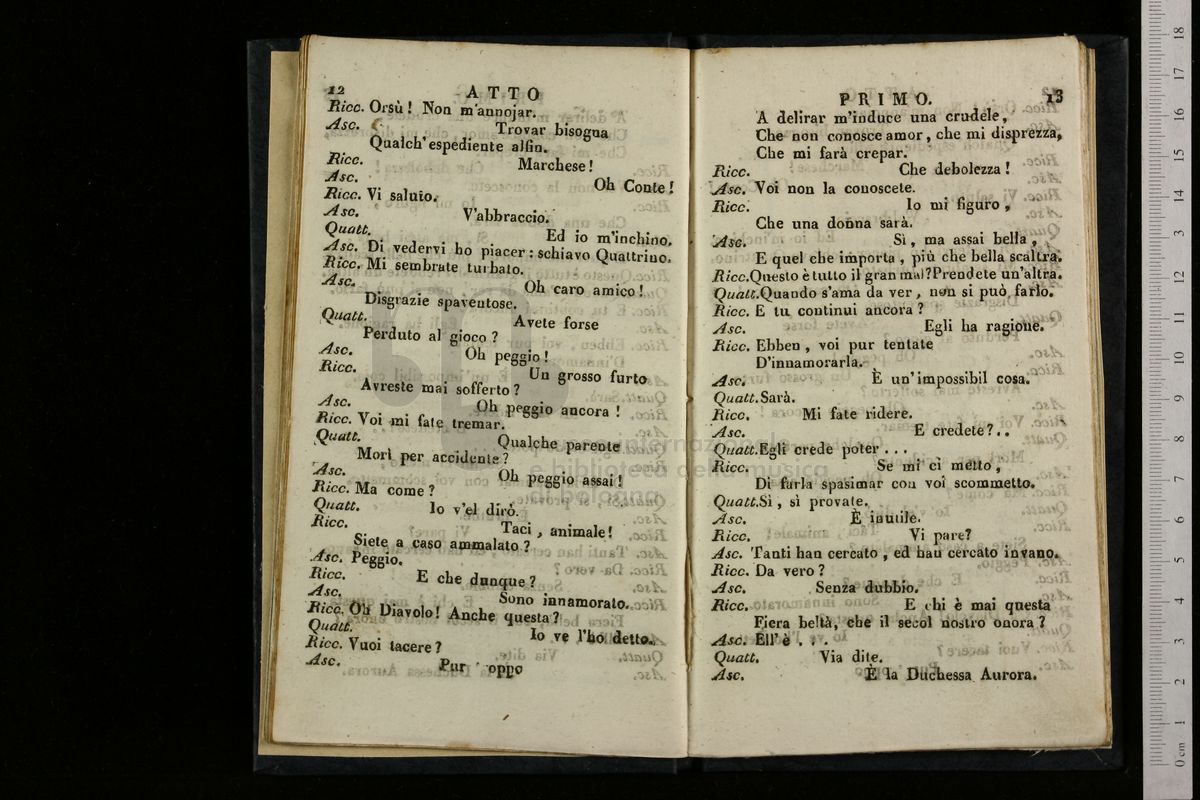 12 ATTO
Ricc. Orsù! Non m'annojar.
Asc. Trovar bisogna
Qualch' espediente alfin.
Ricc. Marchese!
Asc. Oh Conte!
Ricc. Vi saluto.
Asc. V'abbraccio.
Quatt. Ed io m'inchino.
Asc. Di vedervi ho piacer: schiavo Quattrino.
Ricc. Mi sembrate turbato.
Asc. Oh caro amico!
Disgrazie spaventose.
Quatt. Avete forse
Perduto al gioco?
Asc. Oh peggio!
Ricc. Un grosso furto
Avreste mai sofferto?
Asc. Oh peggio ancora!
Ricc. Voi mi fate tremar.
Quatt. Qualche parente
Morì per accidente?
Asc. Oh peggio assai!
Ricc. Ma come?
Quatt. Io v'el dirò.
Ricc. Taci, animale!
Siete a caso ammalato?
Asc. Peggio.
Ricc. E che dunque?
Asc. Sono innamorato.
Ricc. Oh Diavolo! Anche questa?
Quatt. Io ve l'ho detto.
Ricc. Vuoi tacere?
Asc. Pur oppo
PRIMO. 13
A delirar m'induce una crudele,
Che non conosce amor, che mi disprezza,
Che mi farà crepar.
Ricc. Che debolezza!
Asc. Voi non la conoscete.
Ricc. Io mi figuro,
Che una donna sarà.
Asc. Sì, ma assai bella,
E quel che importa, più che bella scaltra.
Ricc. Questo è tutto il gran mal? Prendete un'altra.
Quatt. Quando s'ama da ver, non si può farlo.
Ricc. E tu continui ancora?
Asc. Egli ha ragione.
Ricc. Ebben, voi pur tentate
D'innamorarla.
Asc. È un'impossibil cosa.
Quatt. Sarà.
Ricc. Mi fate ridere.
Asc. E credete?..
Quatt. Egli crede poter...
Ricc. Se mi ci metto,
Di farla spasimar con voi scommetto.
Quatt. Sì, sì provate.
Asc. È inutile.
Ricc. Vi pare?
Asc. Tanti han cercato, ed han cercato invano.
Ricc. Da vero?
Asc. Senza dubbio.
Ricc. E chi è mai questa
Fiera beltà, che il secol nostro onora?
Asc. Ell' è...
Quatt. Via dite.
Asc. È la Duchessa Aurora.
internazionale
e biblioteca della musica
di bologna
0 cm 1 2 3 4 5 6 7 8 9 10 11 12 13 14 15 16 17 18